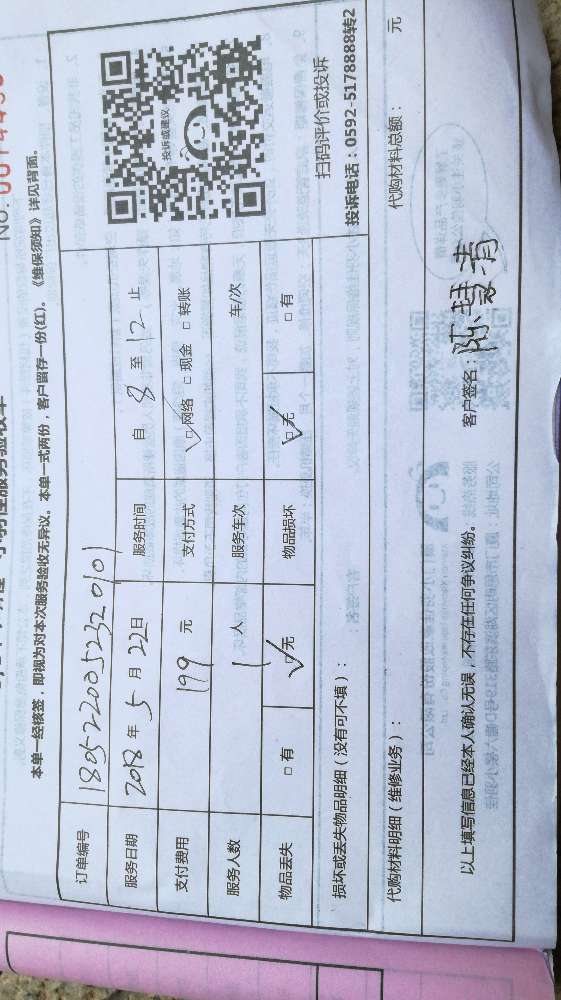 本单一经核签，即视为对本次服务验收无异议。本单一式两份，客户留存一份(红)。《维保须知》详见背面。
订单编号 1805220052320101
服务日期 2018年5月22日 服务时间 自8至12止
支付费用 199元 支付方式 ☑网络 □现金 □转账
服务人数 1人 服务车次 车/次
物品丢失 □有 ☑无 物品损坏 ☑无 □有
投诉或建议
扫码评价或投诉
投诉电话：0592-5178888转2
损坏或丢失物品明细（没有可不填）：
代购材料明细（维修业务）： 代购材料总额： 元
以上填写信息已经本人确认无误，不存在任何争议纠纷。 客户签名：陈慧清